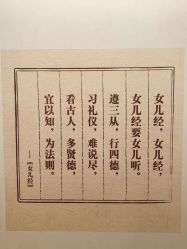 女儿经，女儿经，
女儿经要女儿听。
遵三从，行四德，
习礼仪，难说尽，
看古人，多贤德，
宜以知，为法则。
——《女儿经》